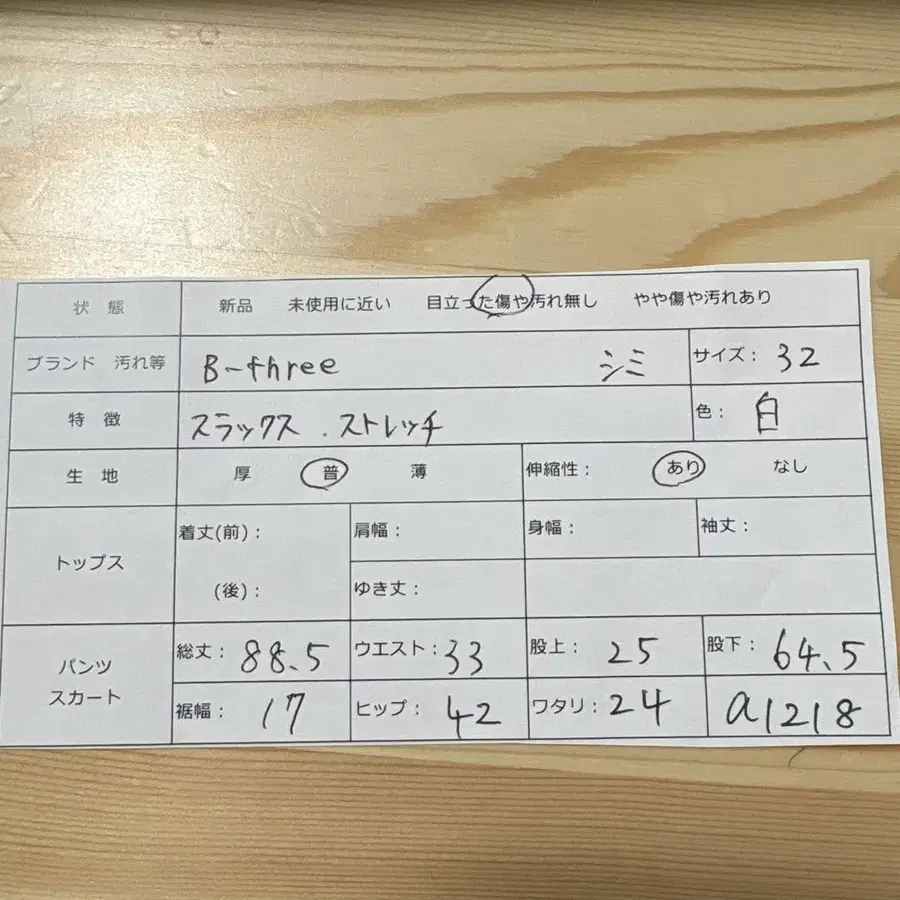 状 態 新品 未使用に近い 目立った傷や汚れ無し やや傷や汚れあり
ブランド 汚れ等 B-three シミ サイズ: 32
特 徴 スラックス . ストレッチ 色: 白
生 地 厚 普 薄 伸縮性: あり なし
トップス 着丈(前): 肩幅: 身幅: 袖丈:
(後): ゆき丈:
パンツ スカート 総丈: 88.5 ウエスト: 33 股上: 25 股下: 64.5
裾幅: 17 ヒップ: 42 ワタリ: 24 a1218